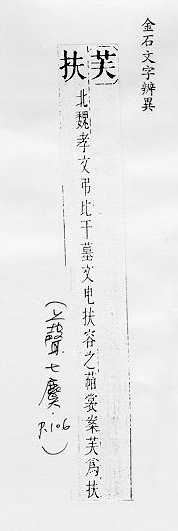 金石文字辨異
芙
扶
北魏孝文弔比干墓文曳扶容之葩裳案芙爲扶
(上聲七麌.
P.106)